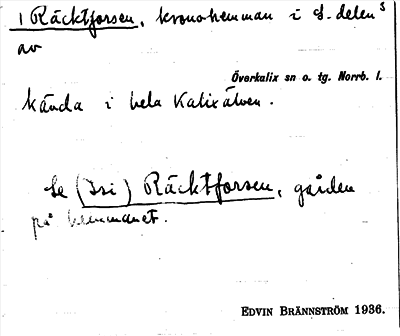 1 Räcktforsen, kronohemman i S. delen
av
Överkalix sn o. tg. Norrb. l.
kända i hela Kalixälven.
Se (Isi) Räcktforsen, gården
på hemmanet.
EDVIN BRÄNNSTRÖM 1936.